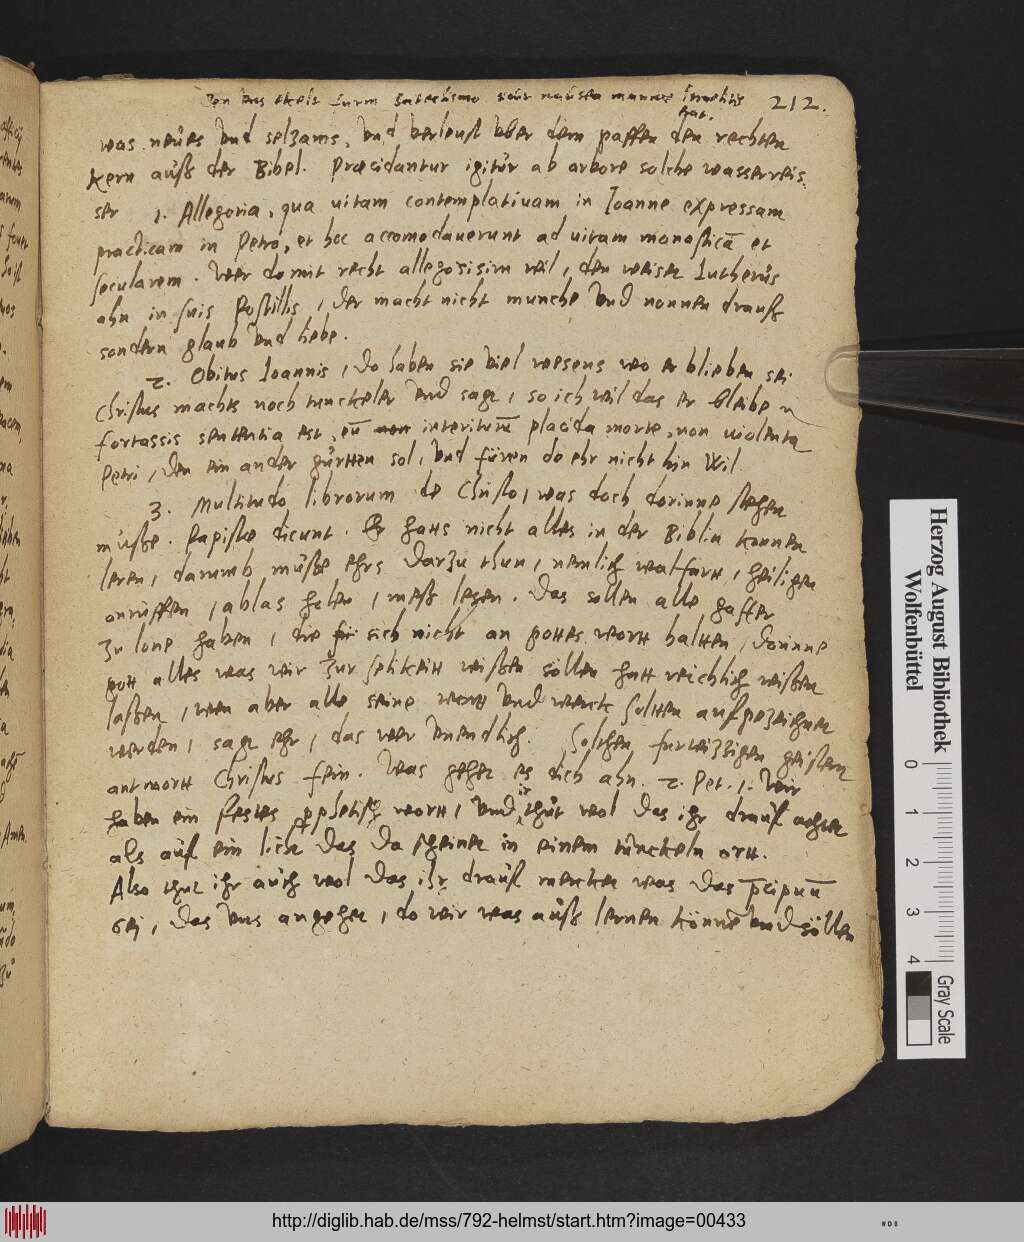 212.
was neues vnd selzams, vnd verleust vber dem paffen den rechten
kern auß der Bibel. Præcidantur igitur ab arbore solche wasserreis
ser 1. Allegoria, qua uitam contemplatiuam in Ioanne expressam
practicam in Petro, et hoc accomodauerunt ad uitam monasticā et
secularem. Wer domit recht allegorisirn wil, den weiset Lutherus
ahn in suis Postillis, der macht nicht munche vnd nonnen drauß
sondern glaub vnd liebe.
2. Obitus Ioannis, do haben sie viel wesens wo er blieben sei
Christus machts noch tunckeler vnd sagt, so ich wil das er bleibe
fortassis sententia est, eū non interitum placida morte, non uiolenta
Petri, den ein ander gürtten sol, vnd füren do ehr nicht hin wil
3. Multitudo librorum de Christo, was doch dorinne stehen
muße. Papistæ dicunt. Er hatts nicht alles in der Biblia konnen
leren, darumb muße ehrs darzu thun, nemlich walfart, heiligen
anruffen, ablas holen, meß lesen. Das sollen alle
zu lone haben, die sich nicht an gottes wortt haltten, dorinne
gott alles was wir zur selikeitt wißen sollen hatt reichlich wißen
laßen, wen aber alle seine wortt vnd werck soltten aufgezeichnet
werden, sagt ehr, das wer vnendlich. Solchen furwitzigen geistern
antwortt Christus fein. Was gehet es dich ahn. 2. Pet. 1. Wir
haben ein festes prophetisch wortt, vnd ir thut wol das ihr drauf achtet
als auf ein licht das da scheinet in einem tunckeln ortt.
Also thut ihr auch wol das ihr drauf mercket was das
sei, das vns angehet, do wir was auß lernen könne vnd söllen
http://diglib.hab.de/mss/792-helmst/start.htm?image=00433
Herzog August Bibliothek
Wolfenbüttel
0 1 2 3 4
Gray Scale